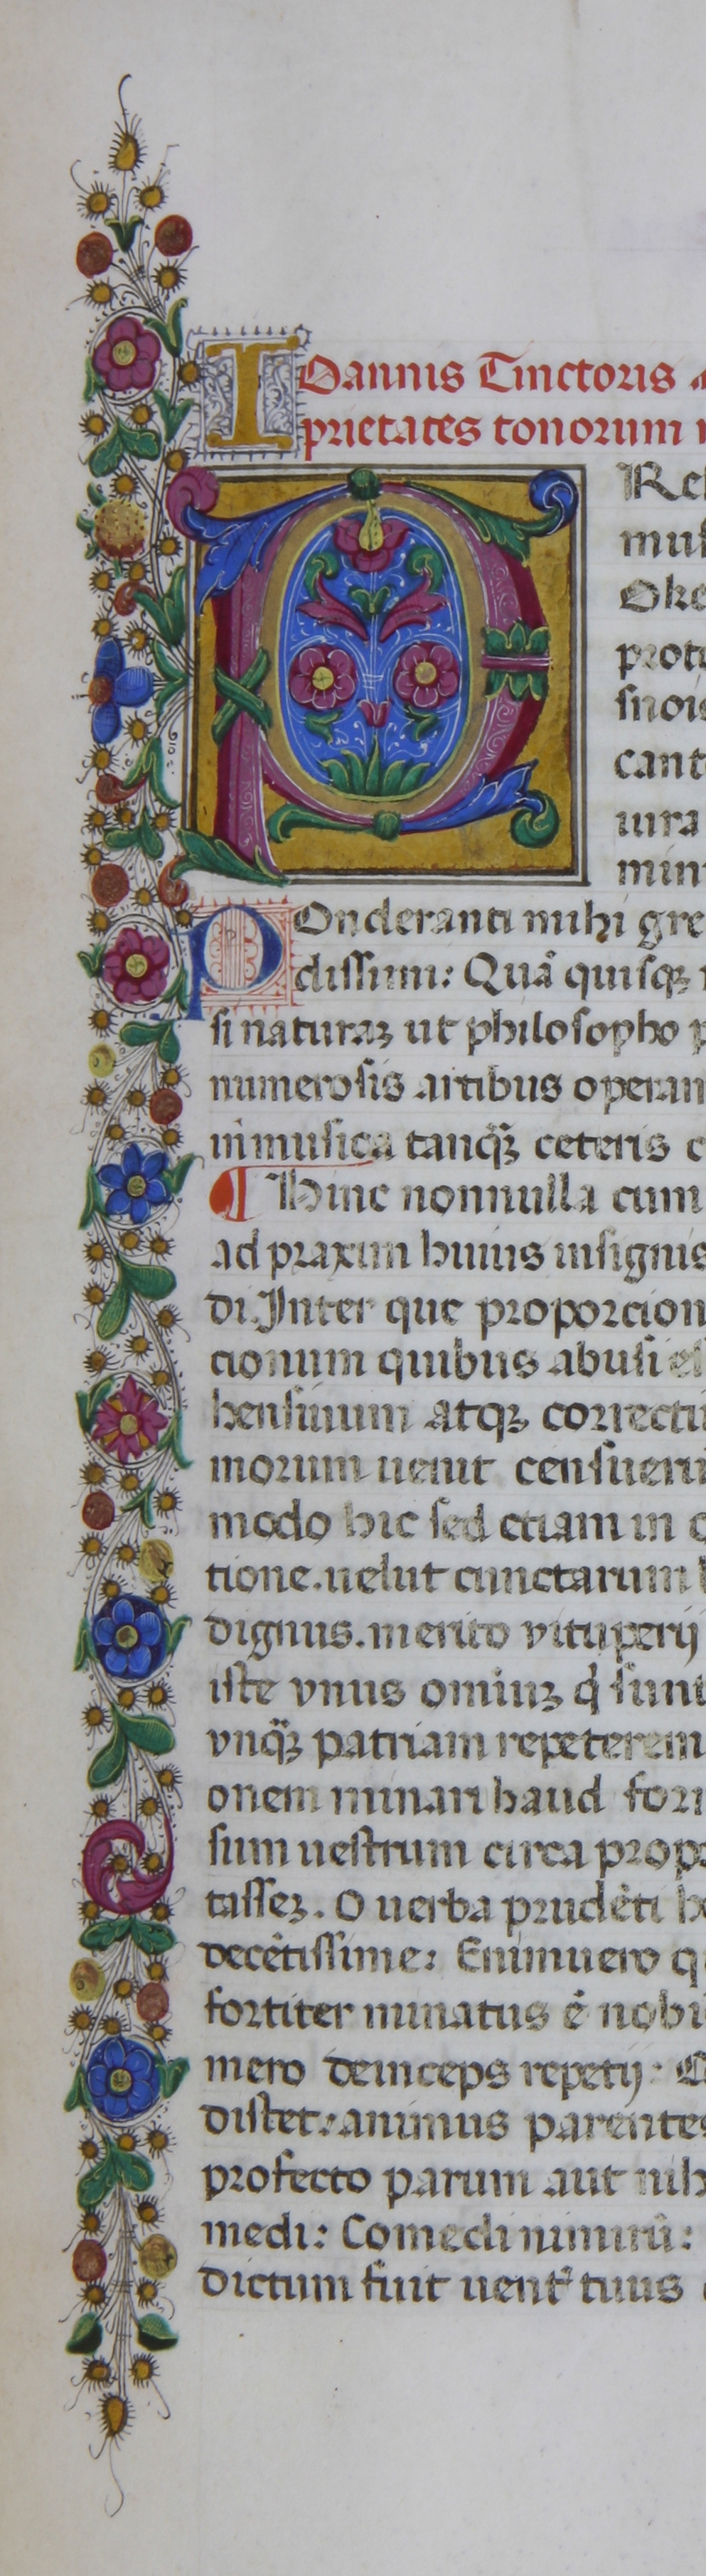 IOannis Tinctoris
prietates tonorum
P
Re
mus
Oke
prot
snoi
cant
uira
min
POnderanti mihi gre
dissim: Quã quisqꝫ
si naturaꝫ ut philosopho p
numerosis artibus operan
in musica tanq̃ꝫ ceteris c
¶ Hinc nonnulla cum
ad praxim huius insignis
di. Inter que proporcion
cionum quibus abusi es
hensiuum atqꝫ correcti
morum uenit censueru
modo hic sed etiam in o
tione. uelut cunctarum
dignus. merito vituperij
iste vnus omiuꝫ q̇ sunt
vnq̃ꝫ patriam repeterem
onem minari haud for
sum uestrum circa prop
tasseꝫ. O uerba prudẽti h
decẽtissime: Enimuero q
fortiter minatus ẽ nobi
mero deinceps repetij:
distet: animus parentes
profecto parum aut nih
medi: Comedi nimirũ:
dictum fuit uent᷑ tuus